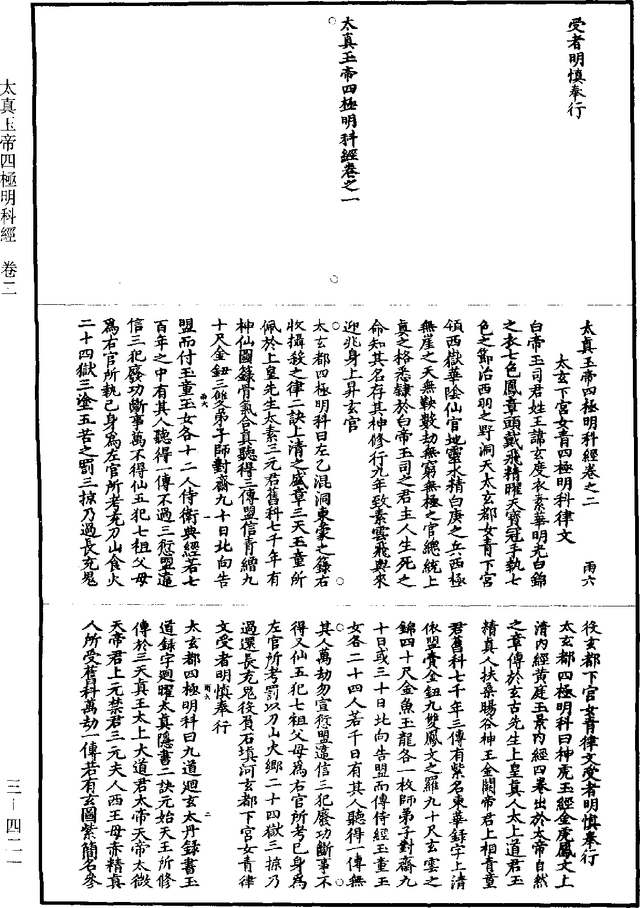 受者明慎奉行
太真玉帝四極明科經卷之一
太真玉帝四極明科經卷之二　雨六
太玄下宮女青四極明科律文
白帝玉司君姓王諱玄度衣素華明光白錦
之衣七色鳳章頭戴飛精曜天寶冠手執七
色之節治西羽之野洞天太玄都女青下宮
領西嶽華陰仙官地靈水精白庚之兵西極
無崖之天無鞅數劫無窮無極之官總統上
真之格悉隸於白帝玉司之君主人生死之
命知其名存其神修行九年致素雲飛輿來
迎兆身上昇玄宮
太玄都四極明科曰左乙混洞東蒙之錄右
收攝殺之律二訣上清之威章三天玉童所
佩於上皇先生太素三元君舊科七千年有
神仙圖錄骨氣合真聽得三傳盟信青繒九
十尺金鈕三雙弟子師對齋九十日北向告
盟而付玉童玉女各十二人侍衛典經若七
百年之中有其人聽得一傳不過三愆盟違
信三犯廢功斷事萬不得仙五犯七祖父母
爲右官所執己身爲左官所考充刀山食火
二十四獄三塗五苦之罰三掠乃過長充鬼
役玄都下官女青律文受者明慎奉行
太玄都四極明科曰神虎玉經金虎威文上
清內經黃庭玉景內經四卷出於太帝自然
之章傳於玄古先生上皇真人太上道君玉
精真人扶桑暘谷神王金闕帝君上相青童
君舊科七千年三傳有紫名東華錄字上清
依盟賫金鈕九雙鳳文之羅九十尺玄雲之
錦四十尺金魚玉龍各一枚師弟子對齋九
十日或三十日北向告盟而傳侍經玉童玉
女各二十四人若千日有其人聽得一傳無
其人萬劫勿宣愆盟違信三犯廢功斷事不
得又仙五犯七祖父母爲右官所考已身爲
左官所考罰以刀山火鄉二十四獄三掠乃
過還長充鬼役負石填河玄都下宮女青律
文受者明慎奉行
太玄都四極明科曰九道迴玄太丹錄書玉
道錄字迴曜太真隱書二訣元始天王所修
傳於三天真王太上大道君太帝天帝太微
天帝君上元禁君三元夫人西王母赤精真
人所受舊科萬劫一傳若有玄圖紫簡名參
太真玉帝四極明科經　卷二
三—四二一